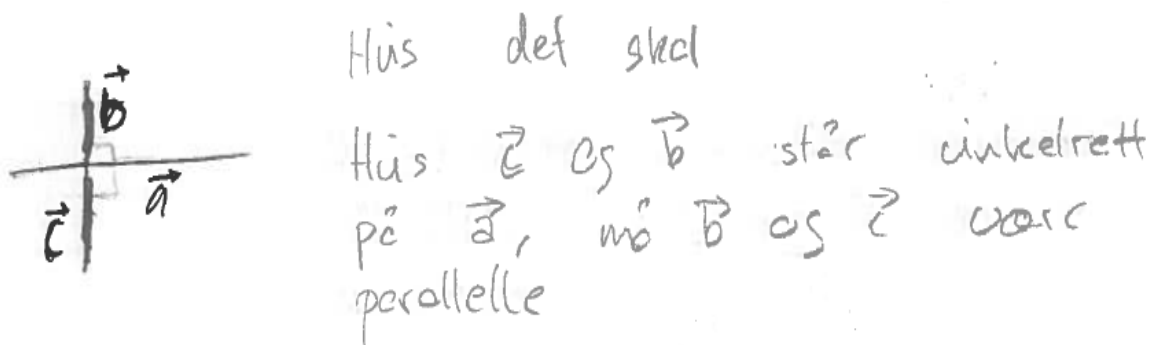 Hvis det skal
Hvis c⃗ og b⃗ står vinkelrett
på a⃗, må b⃗ og c⃗ være
parallelle
b⃗
a⃗
c⃗